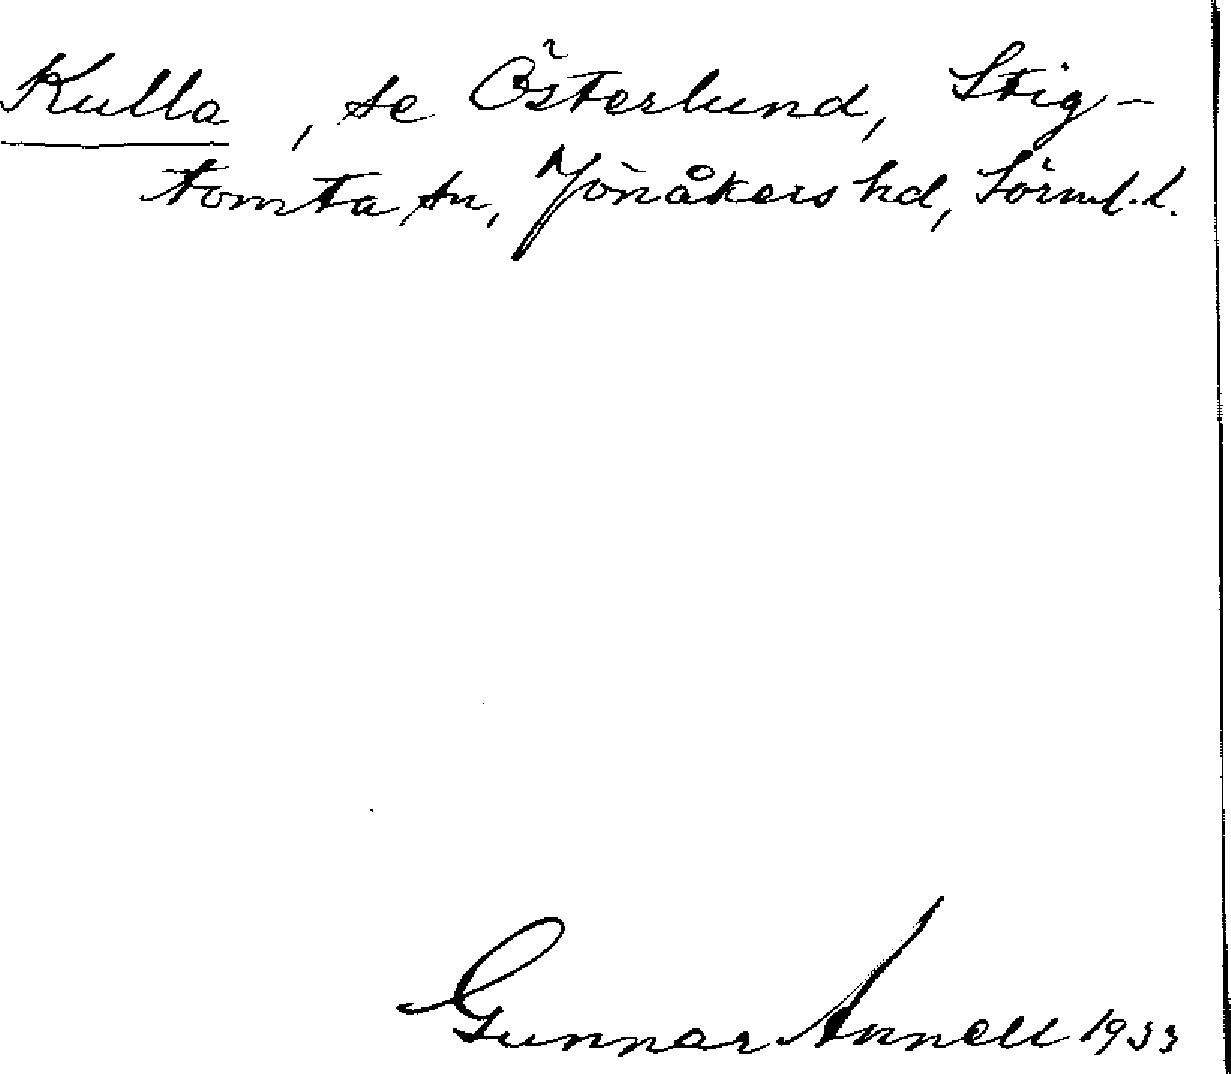 Kulla, se Österlund, Stig-
tomta sn, Jönåkers hd, Sörml. l.
Gunnar Annell 1933